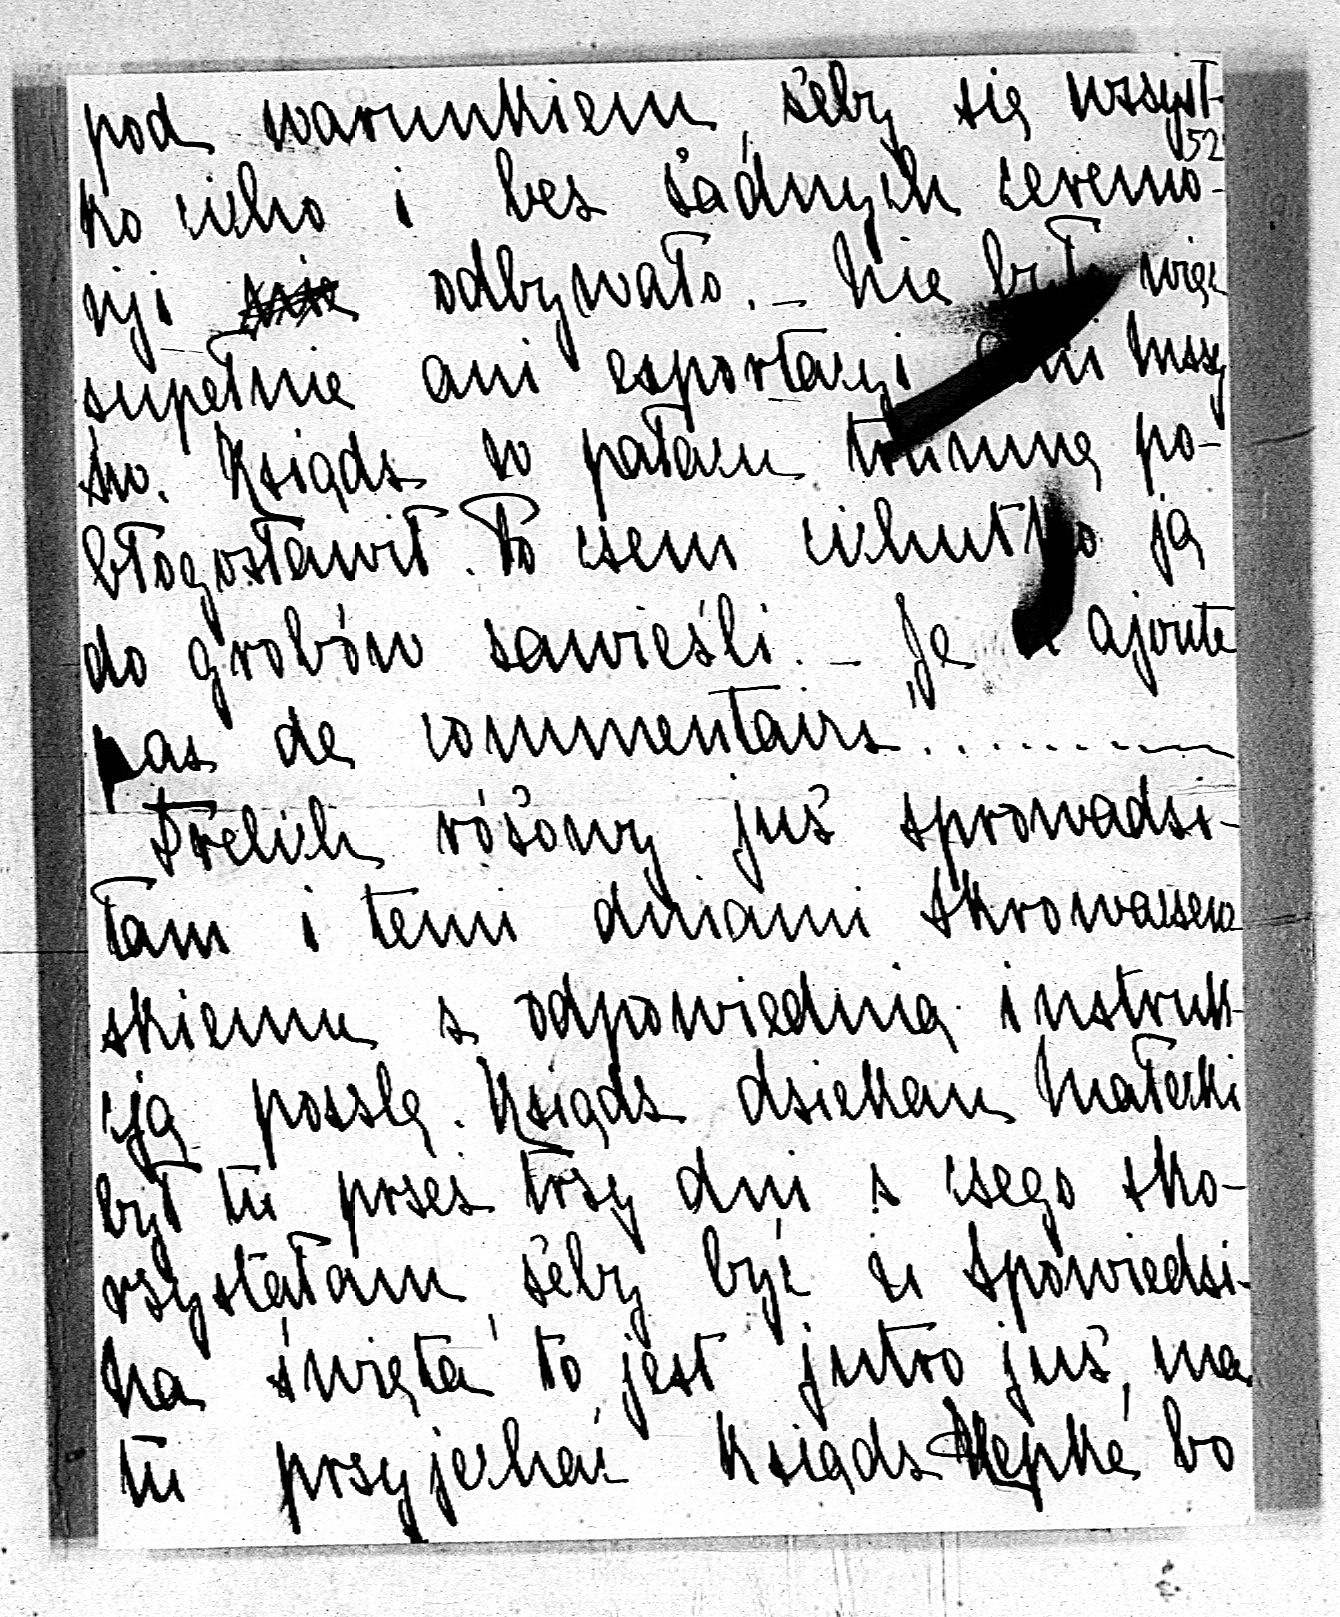 pod warunkiem, żeby się wszyst-
52
ko cicho i bez żadnych ceremo-
nji nie odbywało. – Nie było więc
zupełnie ani esportacyi ani Mszy
św. Ksiądz w pałacu trumnę po-
błogosławił. Po czem cichutko ją
do grobów zawieźli. – „Je n'ajoute
pas de commentairs ..........
Trelich różowy już sprowadzi-
łam i temi dniami Skrowaczew
skiemu z odpowiednią instruk-
cją poszlę. Ksiądz dziekan Małecki
był tu przez trzy dni z czego sko-
rzystałam, żeby być u Spowiedzi.
Na święta, to jest jutro już, ma
tu przyjechać Ksiądz bo